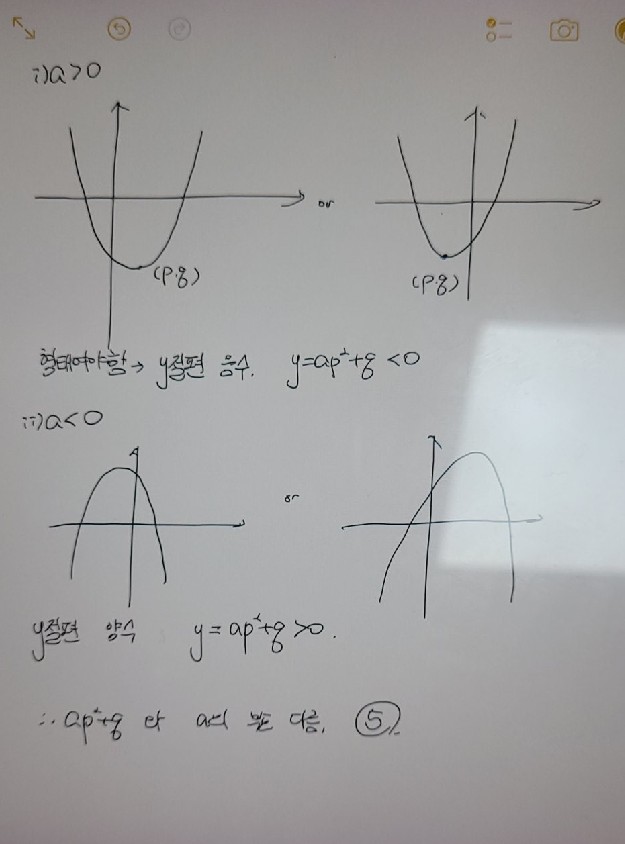 i) a>0
or
(p.q)
(p.q)
형태여야함 → y절편 음수. y=ap²+q <0
ii) a<0
or
y절편 양수 y = ap²+q >0.
∴ ap²+q 와 a의 부호 다름. ⑤